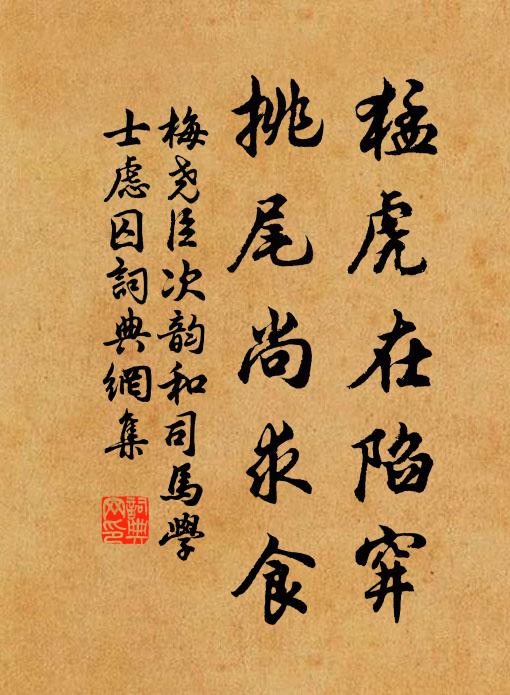 猛虎在陷穽
挑尾尚求食
梅尧臣次韵和司馬學
士慮囚詞典網集
詞典
网印